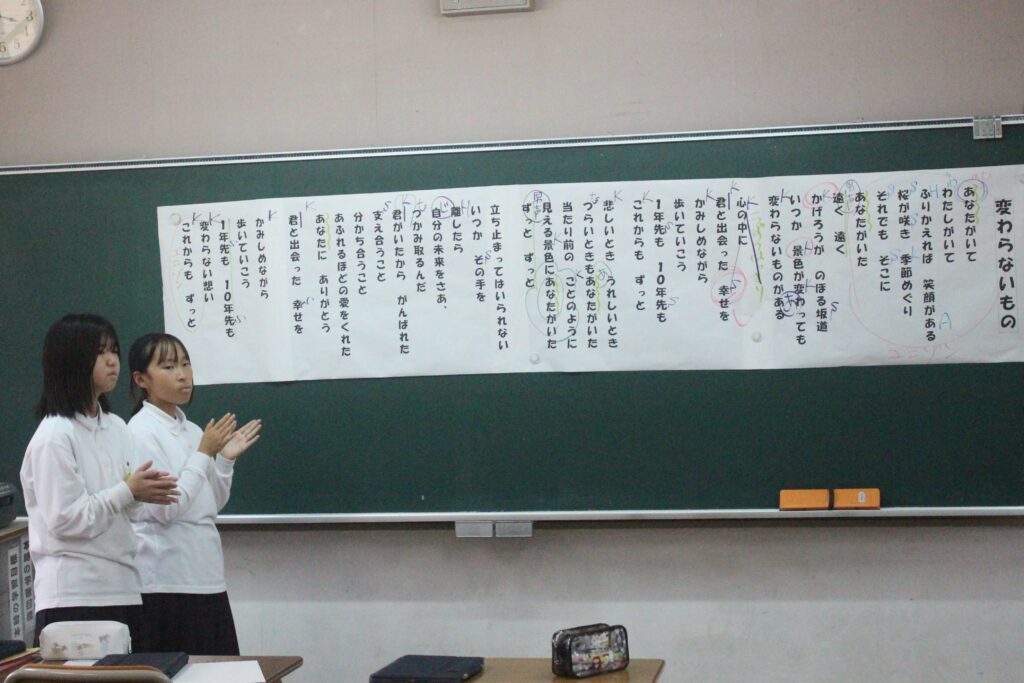 変わらないもの
あなたがいて
わたしがいて
ふりかえれば 笑顔がある
桜が咲き 季節めぐり
それでも そこに
あなたがいた
遠く 遠く
かげろうが のぼる坂道
いつか 景色が変わっても
変わらないものがある
心の中に
君と出会った 幸せを
かみしめながら
歩いていこう
1年先も 10年先も
これからも ずっと
悲しいとき うれしいとき
つらいときもあなたがいた
当たり前の ことのように
見える景色にあなたがいた
ずっと ずっと
立ち止まってはいられない
いつか その手を
離したら
自分の未来をさあ、
つかみ取るんだ
君がいたから がんばれた
支え合うこと
分かち合うこと
あふれるほどの愛をくれた
あなたに ありがとう
君と出会った 幸せを
かみしめながら
歩いていこう
1年先も 10年先も
変わらない想い
これからも ずっと